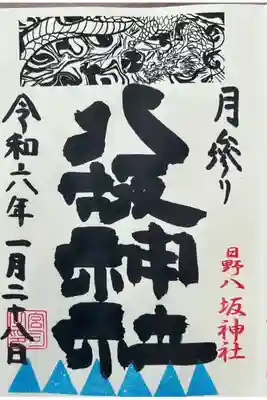 月參り
八坂神社
日野八坂神社
令和六年一月二十八日